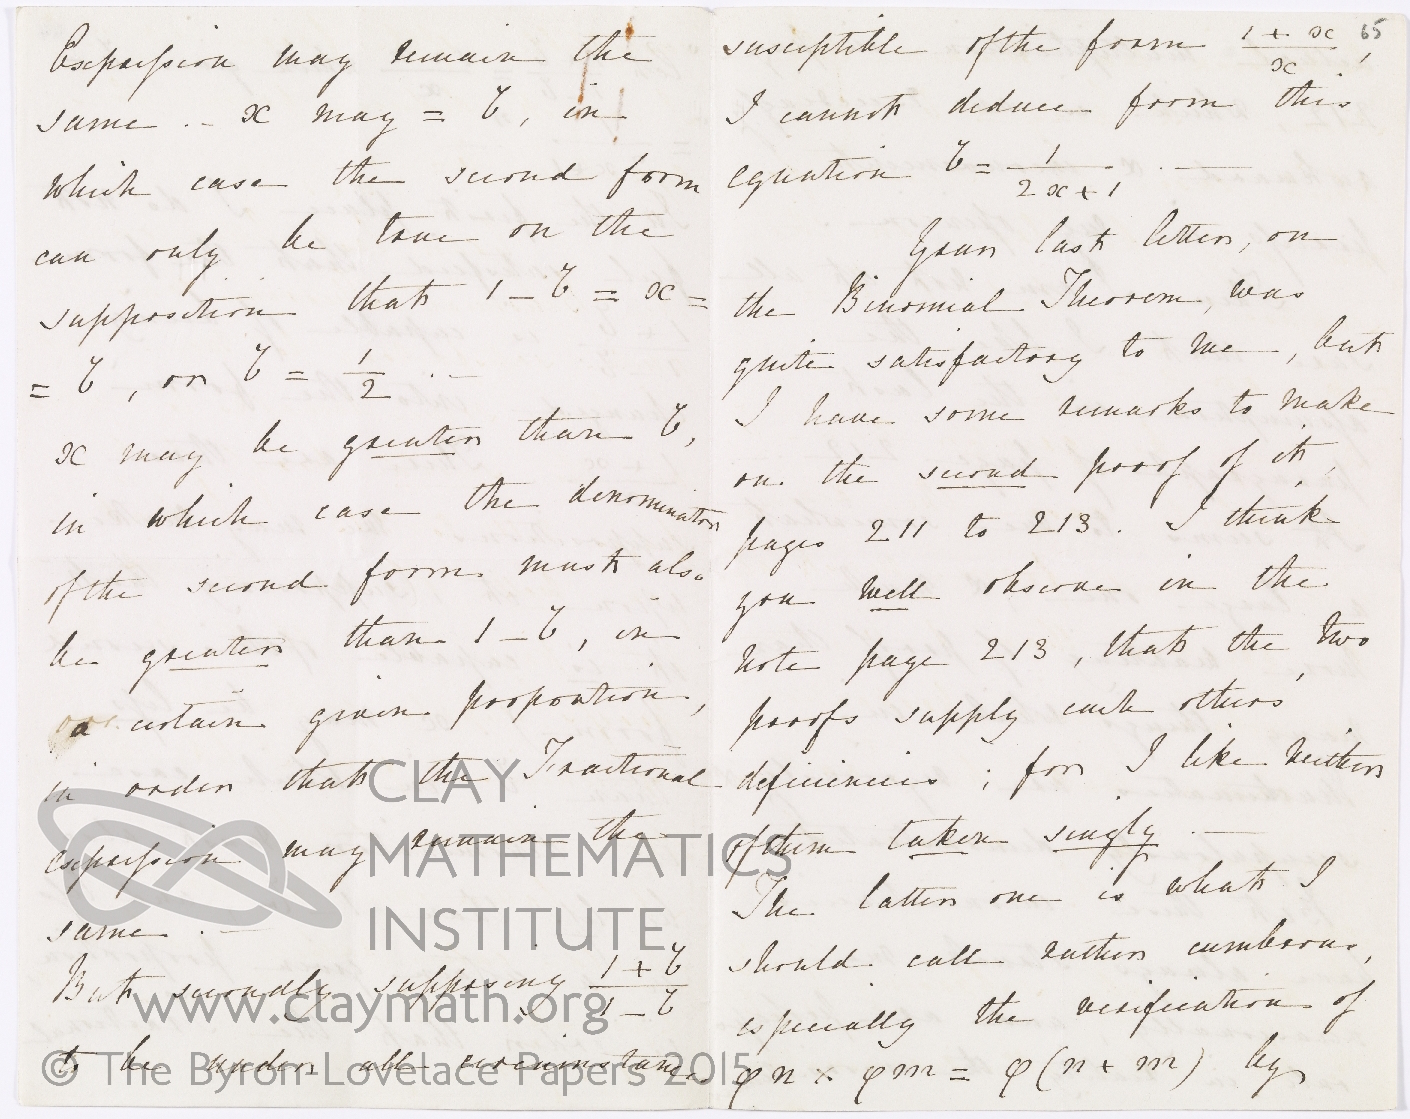 Expression may remain the
same. — x may = b, in
which case the second form
can only be true on the
supposition that 1 - b = x =
= b, or b = 1/2. —
x may be greater than b,
in which case the denominator
of the second form must also
be greater than 1 - b, in
a certain given proportion,
in order that the Fractional
expression may remain the
same. —
But secondly supposing (1 + b)/(1 - b)
to be under all circumstances
65
susceptible of the form (1 + x)/x,
I cannot deduce from this
equation b = 1/(2x + 1). —
Your last letter, on
the Binomial Theorem, was
quite satisfactory to me, but
I have some remarks to make
on the second proof of it,
pages 211 to 213. I think
you well observe in the
note page 213, that the two
proofs supply each others'
deficiencies; for I like neither
of them taken singly. —
The latter one is what I
should call rather cumbrous,
especially the verification of
φn × φm = φ(n + m) by
CLAY
MATHEMATICS
INSTITUTE
www.claymath.org
© The Byron-Lovelace Papers 2015